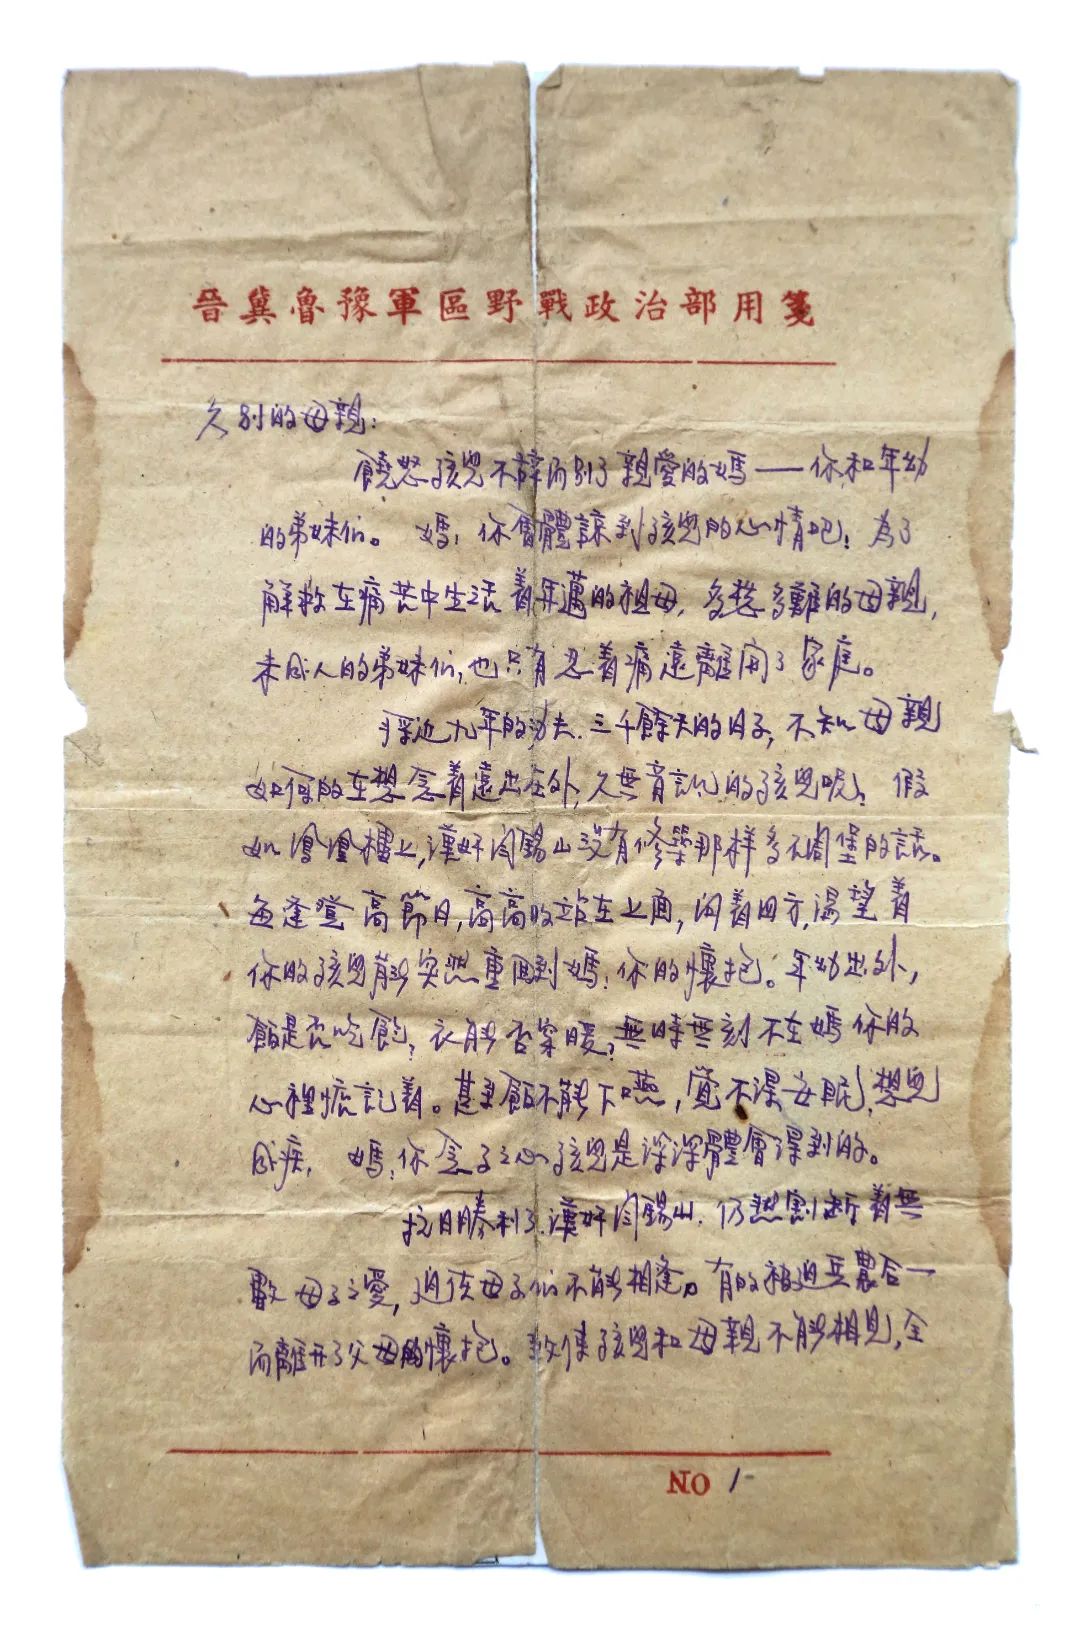 晉冀魯豫軍區野戰政治部用箋
久别的母親：
饒恕孩兒不辞而别了親愛的媽——你和年幼
的弟妹们。媽！你會體諒到孩兒的心情吧！為了
解救在痛苦中生活着年邁的祖母，多愁多難的母親，
未成人的弟妹们，也只有忍着痛遠離開了家庭。
将近九年的功夫．三千餘天的日子，不知母親
如何的在想念着遠出在外，久無音訊的孩兒呢！假
如鳳凰樓上，漢奸阎錫山没有修築那样多碉堡的話。
每逢登高節日，高高的站在上面，向着四方，渴望着
你的孩兒能夠突然重回到媽！你的懷抱。年幼出外，
飯是否吃飽，衣能否穿暖，無時無刻不在媽你的
心裡惦記着。甚至飯不能下嚥，覺不得安眠，想兒
成疾， 媽！你念子之心孩兒是深深體會得到的。
抗日勝利了．漢奸阎錫山．仍然割断着無
數母子之愛，迫使母子们不能相逢。有的被迫
而離开了父母的懷抱。致使孩兒和母親不能相見，全
NO 1